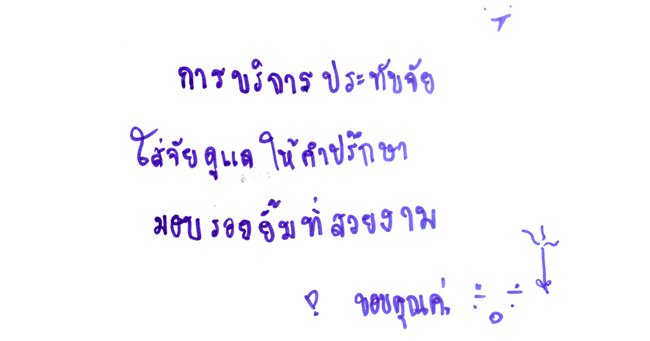 การบริการประทับจัย
ใส่จัยดูแล ให้คำปรึกษา
มอบรอยยิ้มที่สวยงาม
ขอบคุณค่ะ